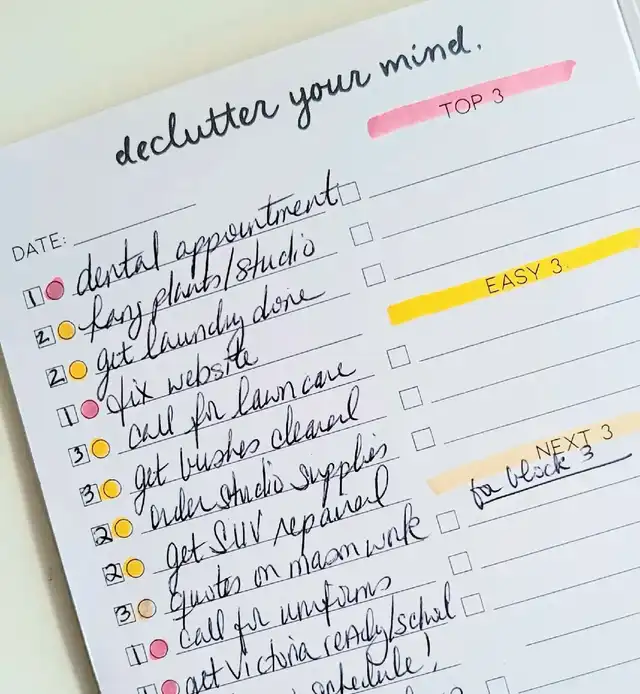 declutter your mind.
DATE:
1 dental appointment
2 hang plants/studio
2 get laundry done
1 fix website
3 call for lawn care
3 get bushes cleared
2 order studio supplies
2 get SUV repaired
3 quotes on mason work
1 call for uniforms
1 get Victoria ready/school
schedule!
TOP 3
EASY 3.
NEXT 3
for block 3